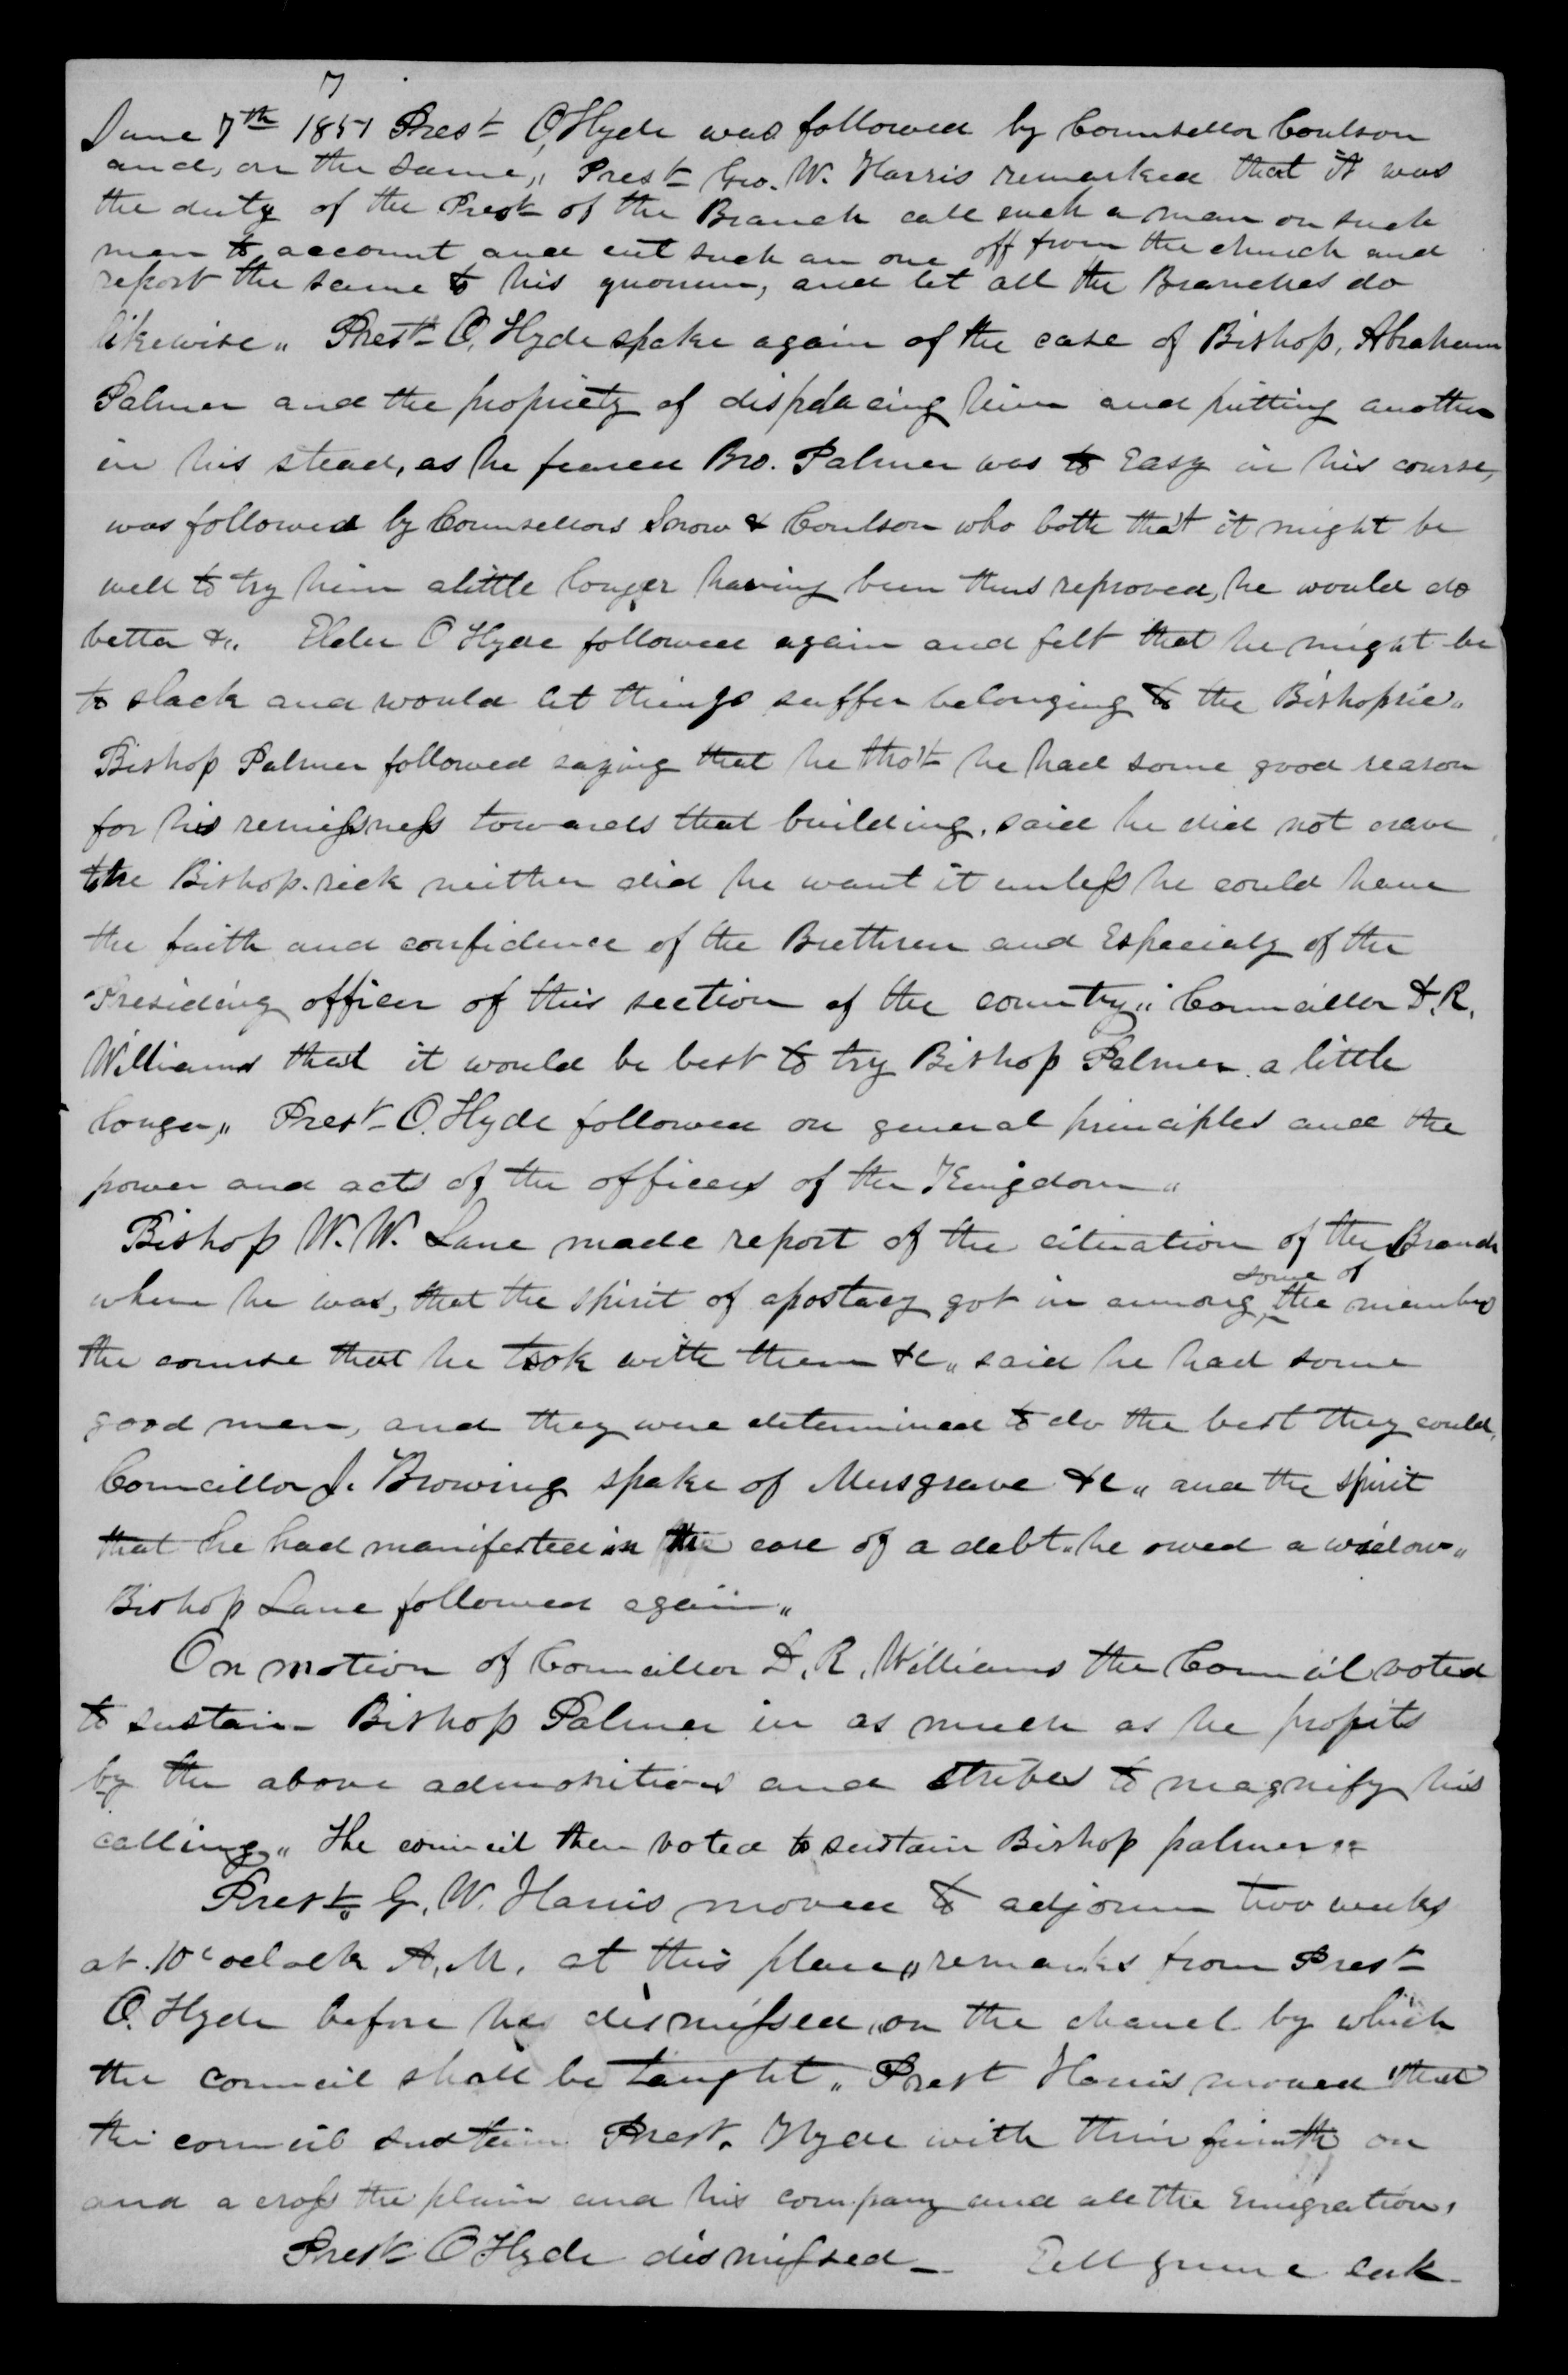 7
June 7th 1851 Prest O, Hyde was followed by Counsellor Coulson
and, on the same,, Prest Geo. W. Harris remarked that it was
the duty of the Prest of the Branch call such a man or such
men to account and cut such an one off from the church and
report the same to his quorum, and let all the Branches do
likewise,, Prest O. Hyde spake again of the case of Bishop, Abraham
Palmer and the propriety of displacing him and putting another
in his stead, as he feared Bro. Palmer was to Easy in his course,
was followed by Counsellors Snow & Coulson who both that it might be
well to try him alittle longer having been thus reproved, he would do
better &c. Elder O Hyde followed again and felt that he might be
to slack and would let things suffer belonging to the Bishopric,,
Bishop Palmer followed saying that he thot he had some good reason
for his remissness towards that building. said he did not crave
the Bishop.rick neither did he want it unless he could have
the faith and confidence of the Brethren and Especialy of the
Presiding officer of this section of the country,, Councillor D. R.
Williams that it would be best to try Bishop Palmer a little
longer,, Prest O. Hyde followed on general principles and the
power and acts of the officers of the Kingdom,,
Bishop W. W. Lane made report of the cituation of the Branch
some of
where he was, that the spirit of apostacy got in among the members
the course that he took with them &c,, said he had some
good men, and they were determined to do the best they could,
Councillor J. Browing spake of Musgrave &c,, and the spirit
that he had manifested in the case of a debt he owed a widow,,
Bishop Lane followed again,,
On motion of Councillor D. R. Williams the Council voted
to sustain Bishop Palmer in as much as he profits
by the above admonitions and strives to magnify his
calling,, The council then voted to sustain Bishop palmer,,
Prest G. W. Harris moved to adjourn two weeks
at 10 oclock A. M. at this place,, remarks from Prest
O. Hyde before he dismissed, on the chanel by which
the council shall be taught,, Prest Harris moved that
the council sustain Prest. Hyde with their faith on
and across the plain and his company and all the Emigration,
Prest O Hyde dismissed